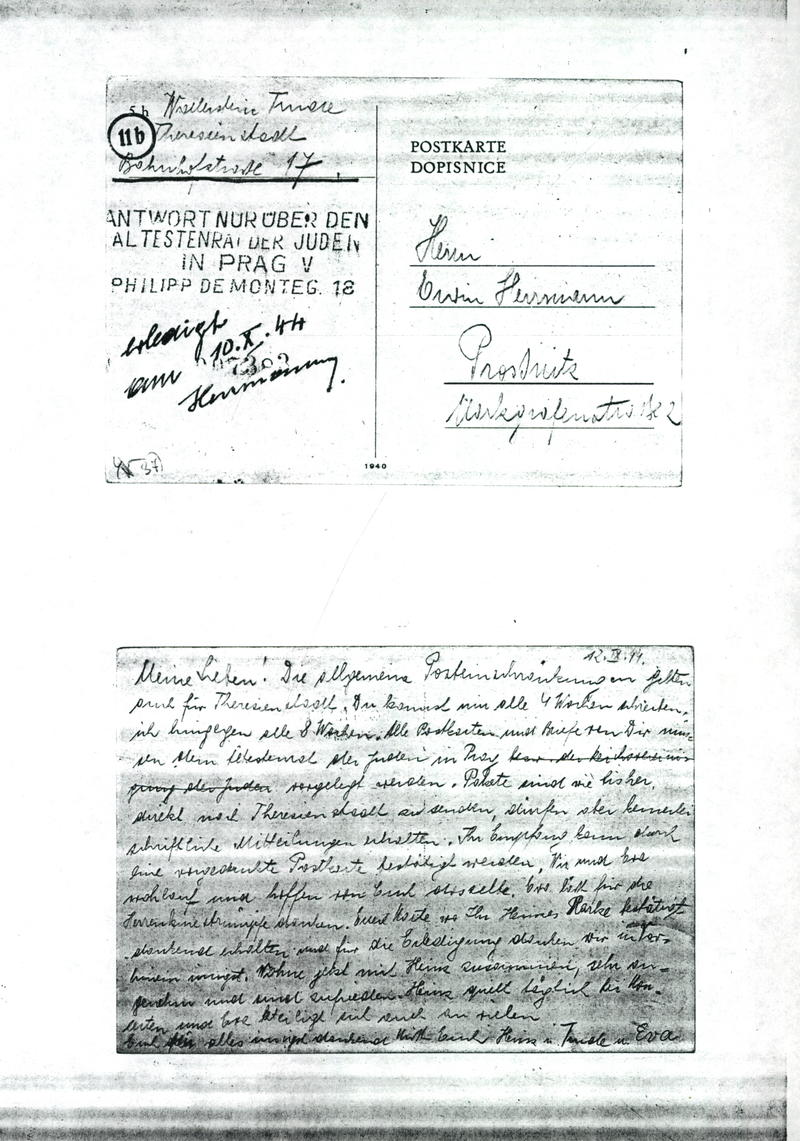 5 h Wallerstein Trude
11b Theresienstadt
Bahnhofstraße 17
ANTWORT NUR ÜBER DEN
ÄLTESTENRAT DER JUDEN
IN PRAG V
PHILIPP DE MONTEG. 18
erledigt
am 10.X.44
Herrmann
37
1940
POSTKARTE
DOPISNICE
Herrn
Erwin Herrmann
Prossnitz
Markgrafenstraße 2
12.IX.44.
Meine Lieben! Die allgemeine Posteinschränkungen gelten
auch für Theresienstadt. Du kannst nun alle 4 Wochen schreiben,
ich hingegen alle 8 Wochen. Alle Postkarten und Briefe von Dir müs-
sen dem Ältestenrat der Juden in Prag bzw. der Reichsvereini-
gung der Juden vorgelegt werden. Pakete sind wie bisher,
direkt nach Theresienstadt zu senden, dürfen aber keinerlei
schriftliche Mitteilungen enthalten. Ihr Empfang kann durch
eine vorgedruckte Postkarte bestätigt werden. Wir sind
wohlauf und hoffen von Euch dasselbe. Eva läßt für die
danken. Euere Karte wo Ihr Hannes Marke bestätigt
dankend erhalten und für die Erledigung danken wir
innigst. Wohne jetzt mit Heinz zusammen, sehr an-
genehm und sind zufrieden. Heinz spielt täglich bei Kon-
zerten und Eva beteiligt sich auch an vielen
Euch für alles innigst dankend küßt Euch Heinz u. Trude u Eva